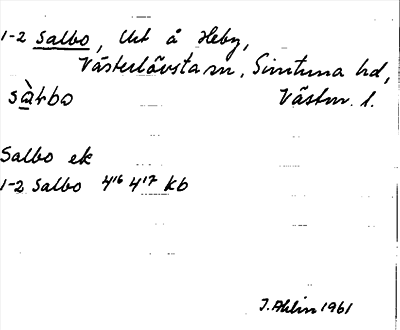 1-2 Salbo, Ut å Heby,
Västerlövsta sn, Simtuna hd,
sàłbo Västm. l.
Salbo ek
1-2 Salbo 4¹⁶ 4¹⁷ Kb
J. Ahlin 1961